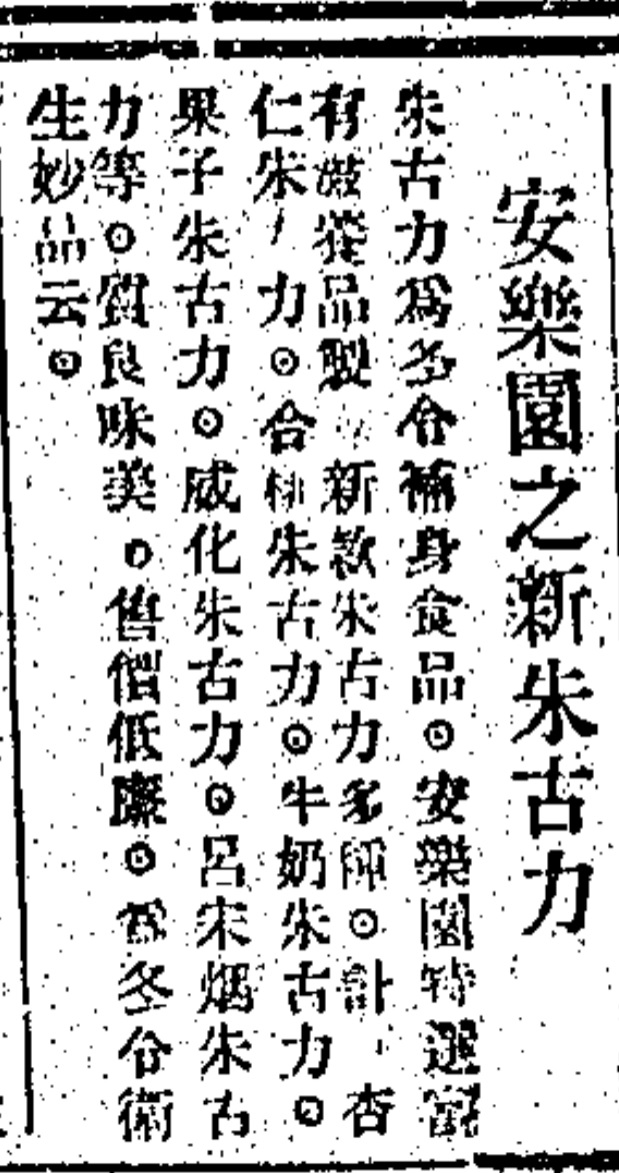 安樂園之新朱古力
朱古力爲冬令補身食品。安樂園特選富
有滋養品製 新款朱古力多種。計 杏
仁朱 力。合桃朱古力。牛奶朱古力。
果子朱古力。威化朱古力。呂宋烟朱古
力等。質良味美。售價低廉。爲冬令衛
生妙品云。